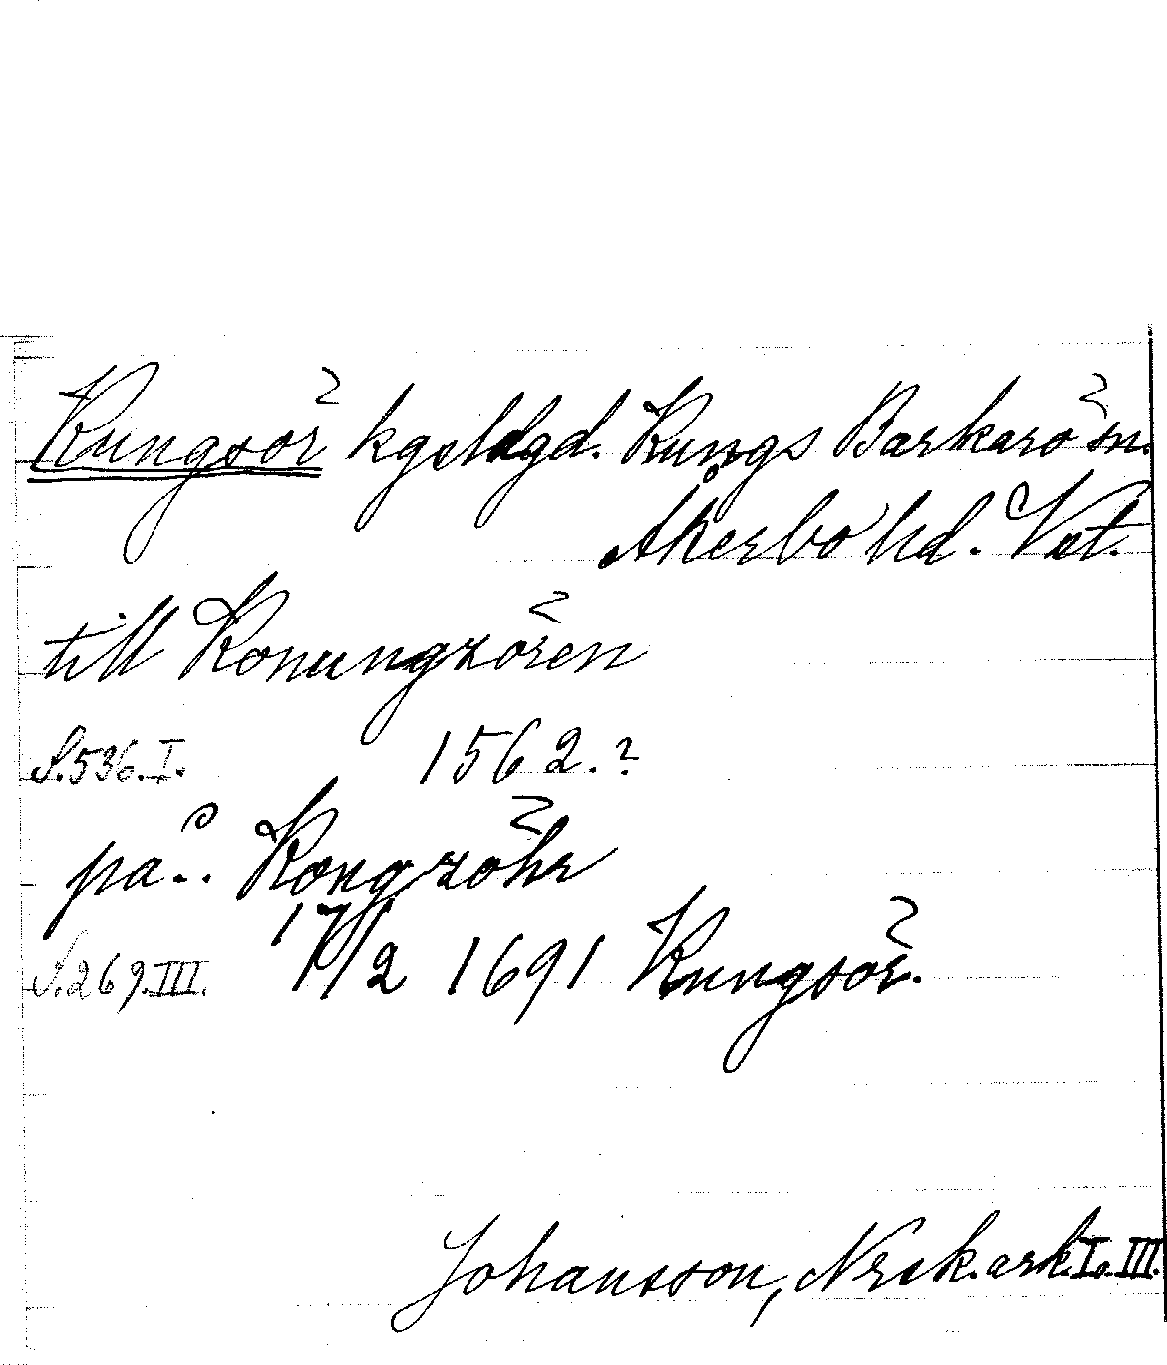 Kungsör kgsldgd. Kungs Barkarö sn.
Åkerbo hd. Vst.
till Konungzören
S. 536. I. 1562.?
på.. Kongzöhr
S. 269. III. 17/2 1691 Kungsör.
Johansson, Nrsk. ark. I. III.